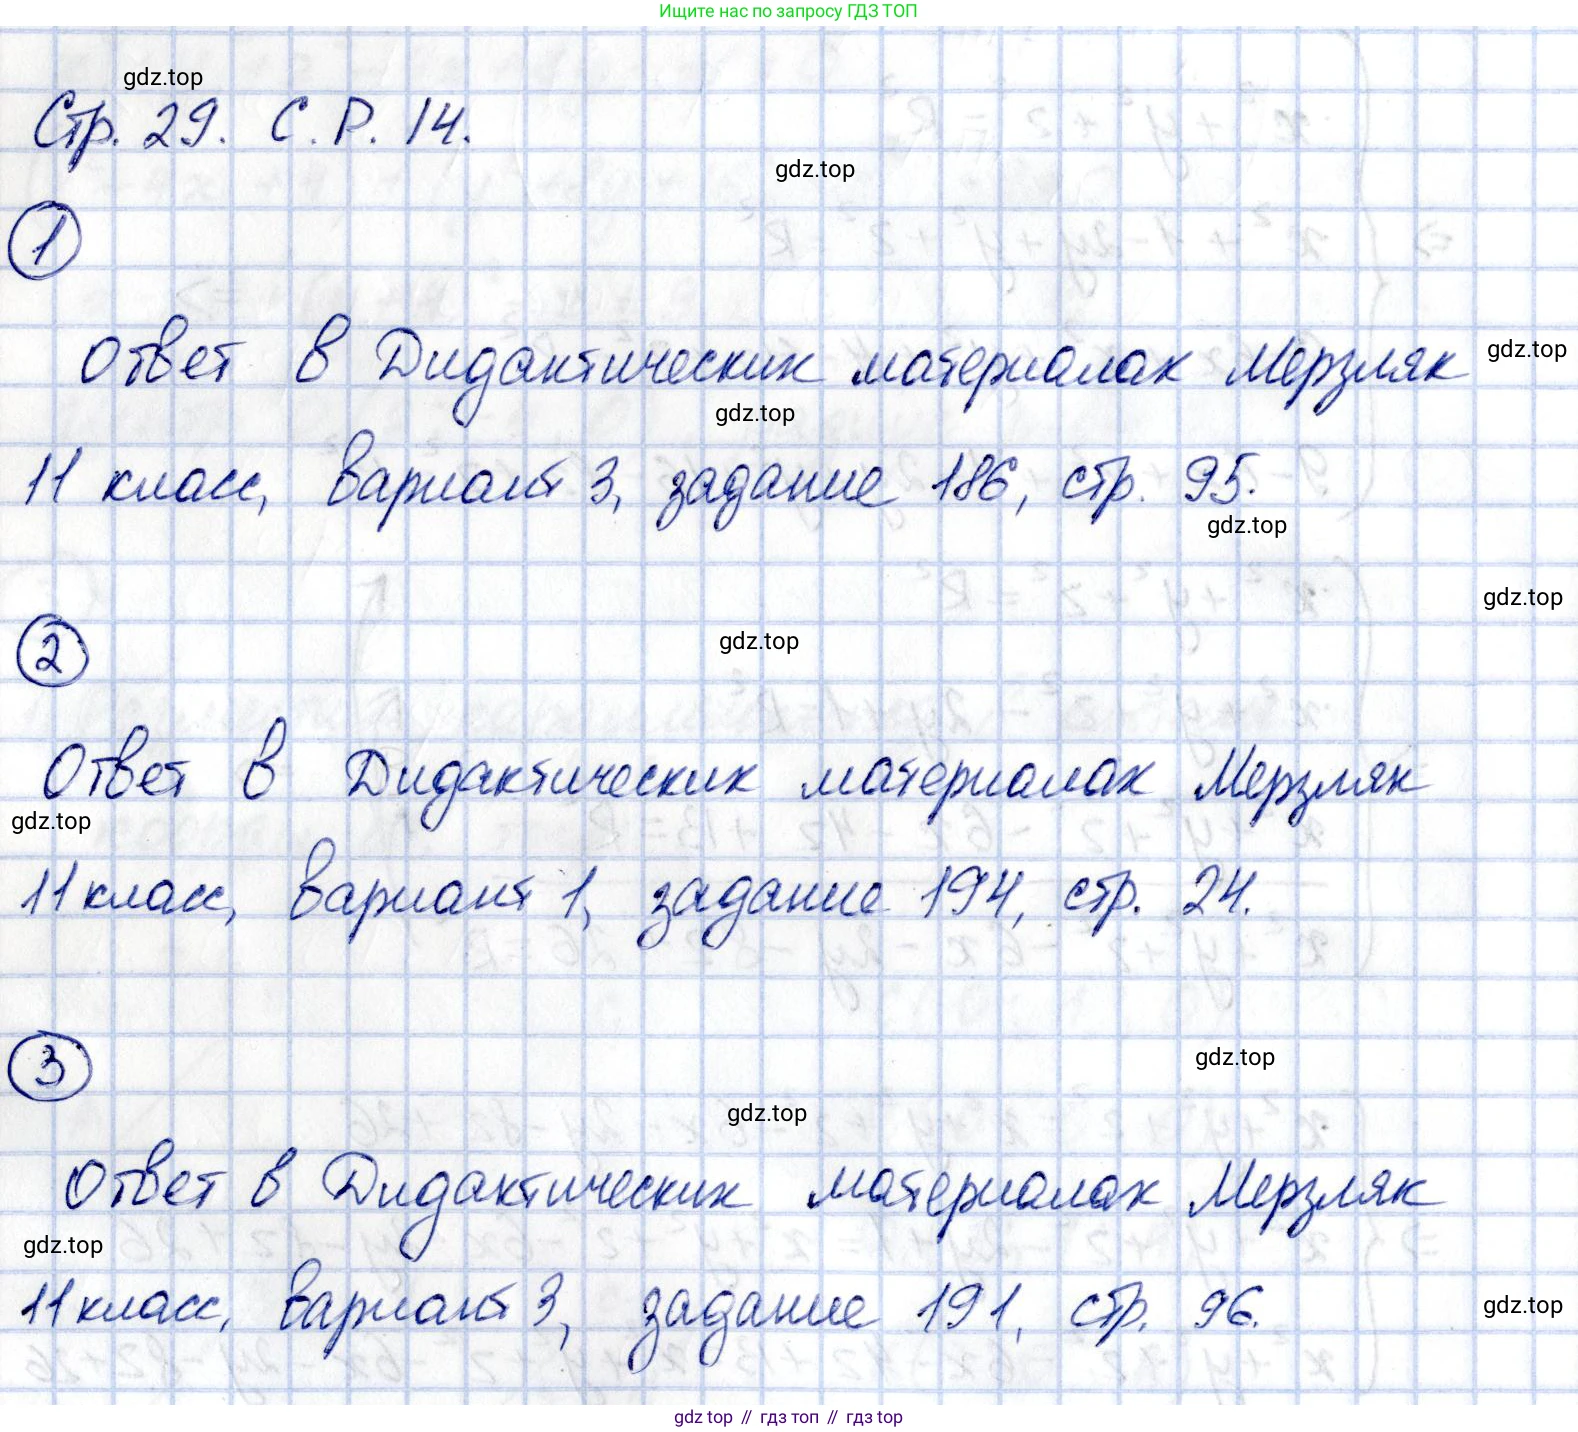 Ищите нас по запросу ГДЗ ТОП
gdz.top
Стр. 29. С. Р. 14.
gdz.top
1
Ответ в Дидактических материалах Мерзляк
gdz.top
gdz.top
11 класс, вариант 3, задание 186, стр. 95.
gdz.top
gdz.top
2
gdz.top
Ответ в Дидактических материалах Мерзляк
gdz.top
11 класс, вариант 1, задание 194, стр. 24.
3
gdz.top
gdz.top
Ответ в Дидактических материалах Мерзляк
gdz.top
11 класс, вариант 3, задание 191, стр. 96.
gdz.top
gdz top // гдз топ // гдз top